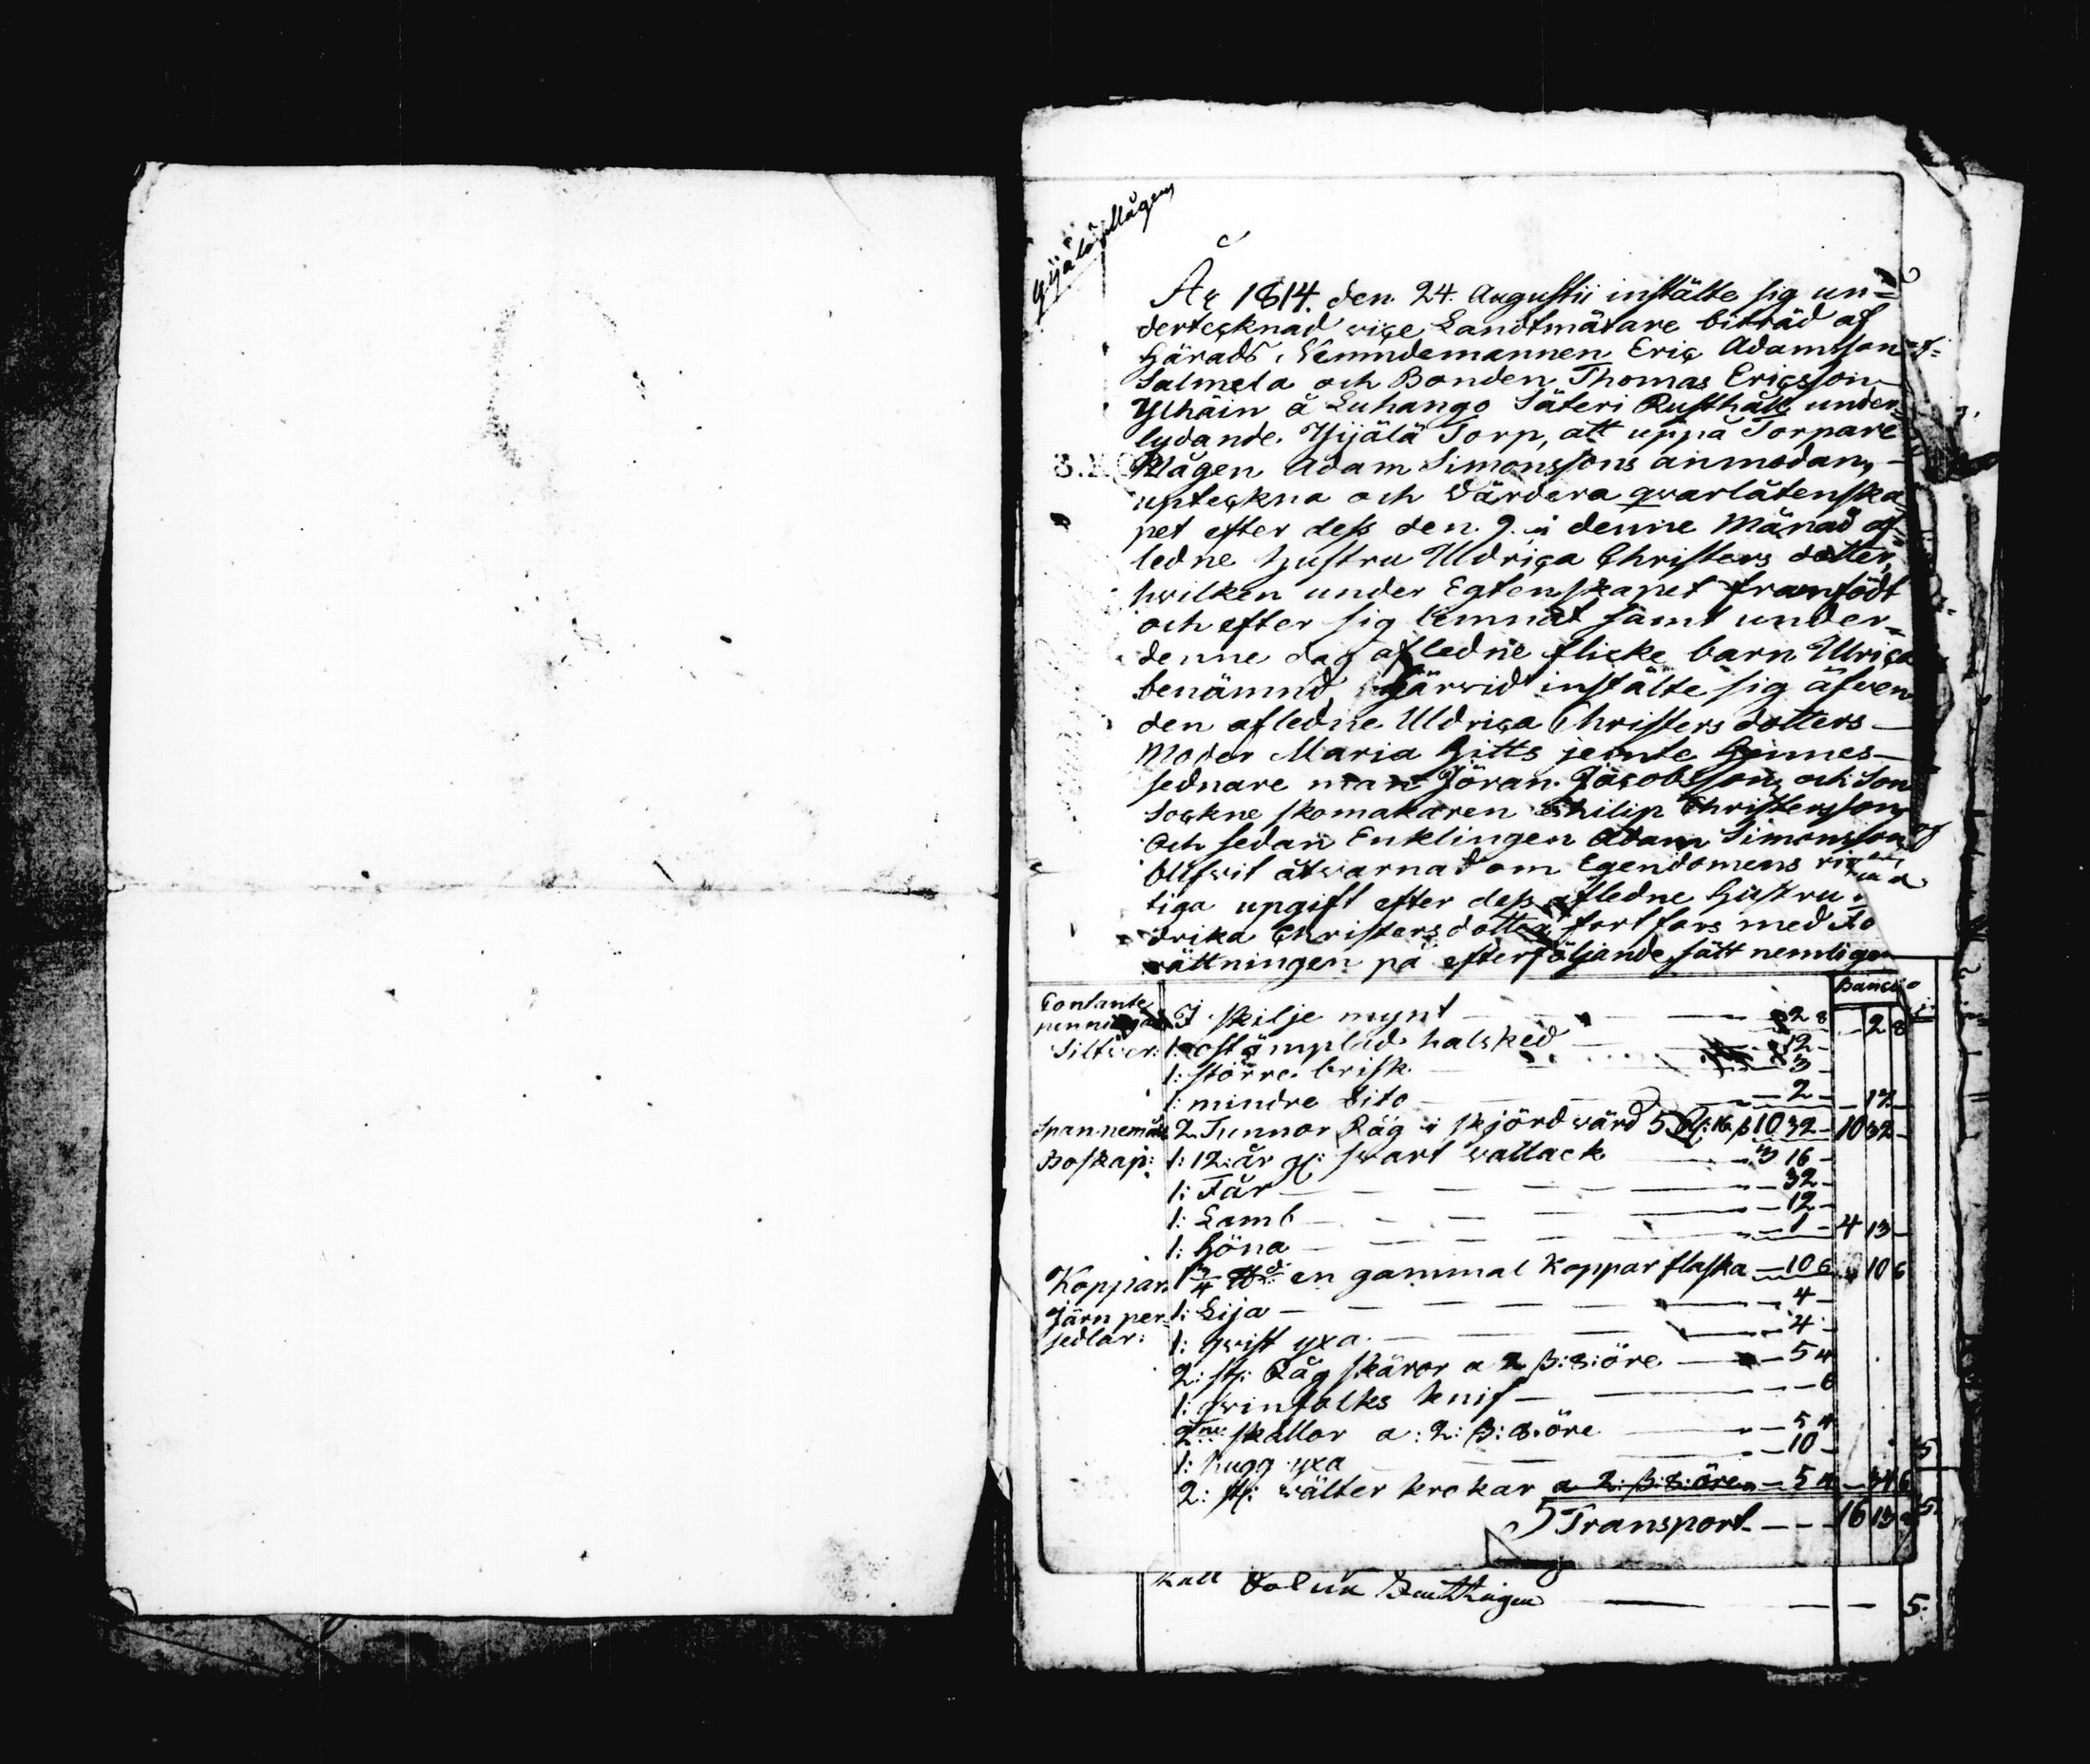 Yijälä Mågen
År 1814. den 24. Augustii instälte sig un=
dertecknad vice Landtmätare biträd af
Härads Nämndemannen Eric Adamsson
Salmela och Bonden Thomas Ericsson
Ylhäin å Luhango Säteri Rusthåll under=
lydande Yijälä Torp, att uppå Torpare
Mågen Adam Simonssons anmodan,
upteckna och värdera qvarlåtenska
pet efter dess den 9. i denne Månad af=
ledne hustru Uldrica Christers dotter,
hvilken under Egtenskapet framfödt
och efter sig lemnat samt under=
denne dag afledne flicke barn Ulrica
benämnd, härvid instälte sig äfven
den afledne Uldrica Christers dotters
Moder Maria Hitts jemte hennes
sednare man Jöran Jacobsson, och Son
Sockne skomakaren Philip Christersson
Och sedan Enklingen Adam Simonsson
blifvit åtvarnad om Egendomens rig
tiga upgift efter dess afledne Hustru
drika Christersdotter fortfors med
rättningen på efterföljande sätt nemligen
Banco
Contante penningar I skilje mynt — 2 8 — 2 8
Silfver: 1: ostämplad halsked — 12 —
1: större brisk — 3 —
1: mindre dito — 2 — 17 —
Spannemål 2 Tunnor Råg i skjörd värd 5 Rd: 16 ß 10 32 — 10 32 —
Boskap: 1: 12 år gl: svart vallack — 3 16 —
1: Får — 32 —
1: Lamb — 12 —
1: Höna — 1 — 4 13 —
Koppar 1 3/4 en gammal Koppar flaska — 10 6 10 6
Järn per= 1: Lija — 4 —
sedlar: 1: qvist yxa — 4 —
2: st: Råg skäror a 2 ß: 8: öre — 5 4
1: qvinfolks knif — 6
2ne skållor a: 2: ß: 8: öre — 5 4
1: hugg yxa — 10 —
2: st: välter krokar a 2: ß: 8: öre — 5 4 — 34 6
Transport — 16 13
5